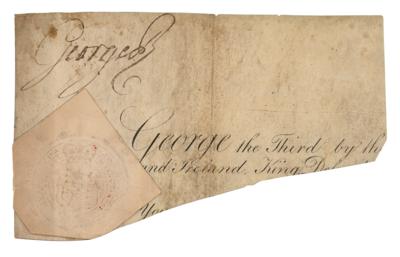 George R
George the Third by the
and Ireland, King, De